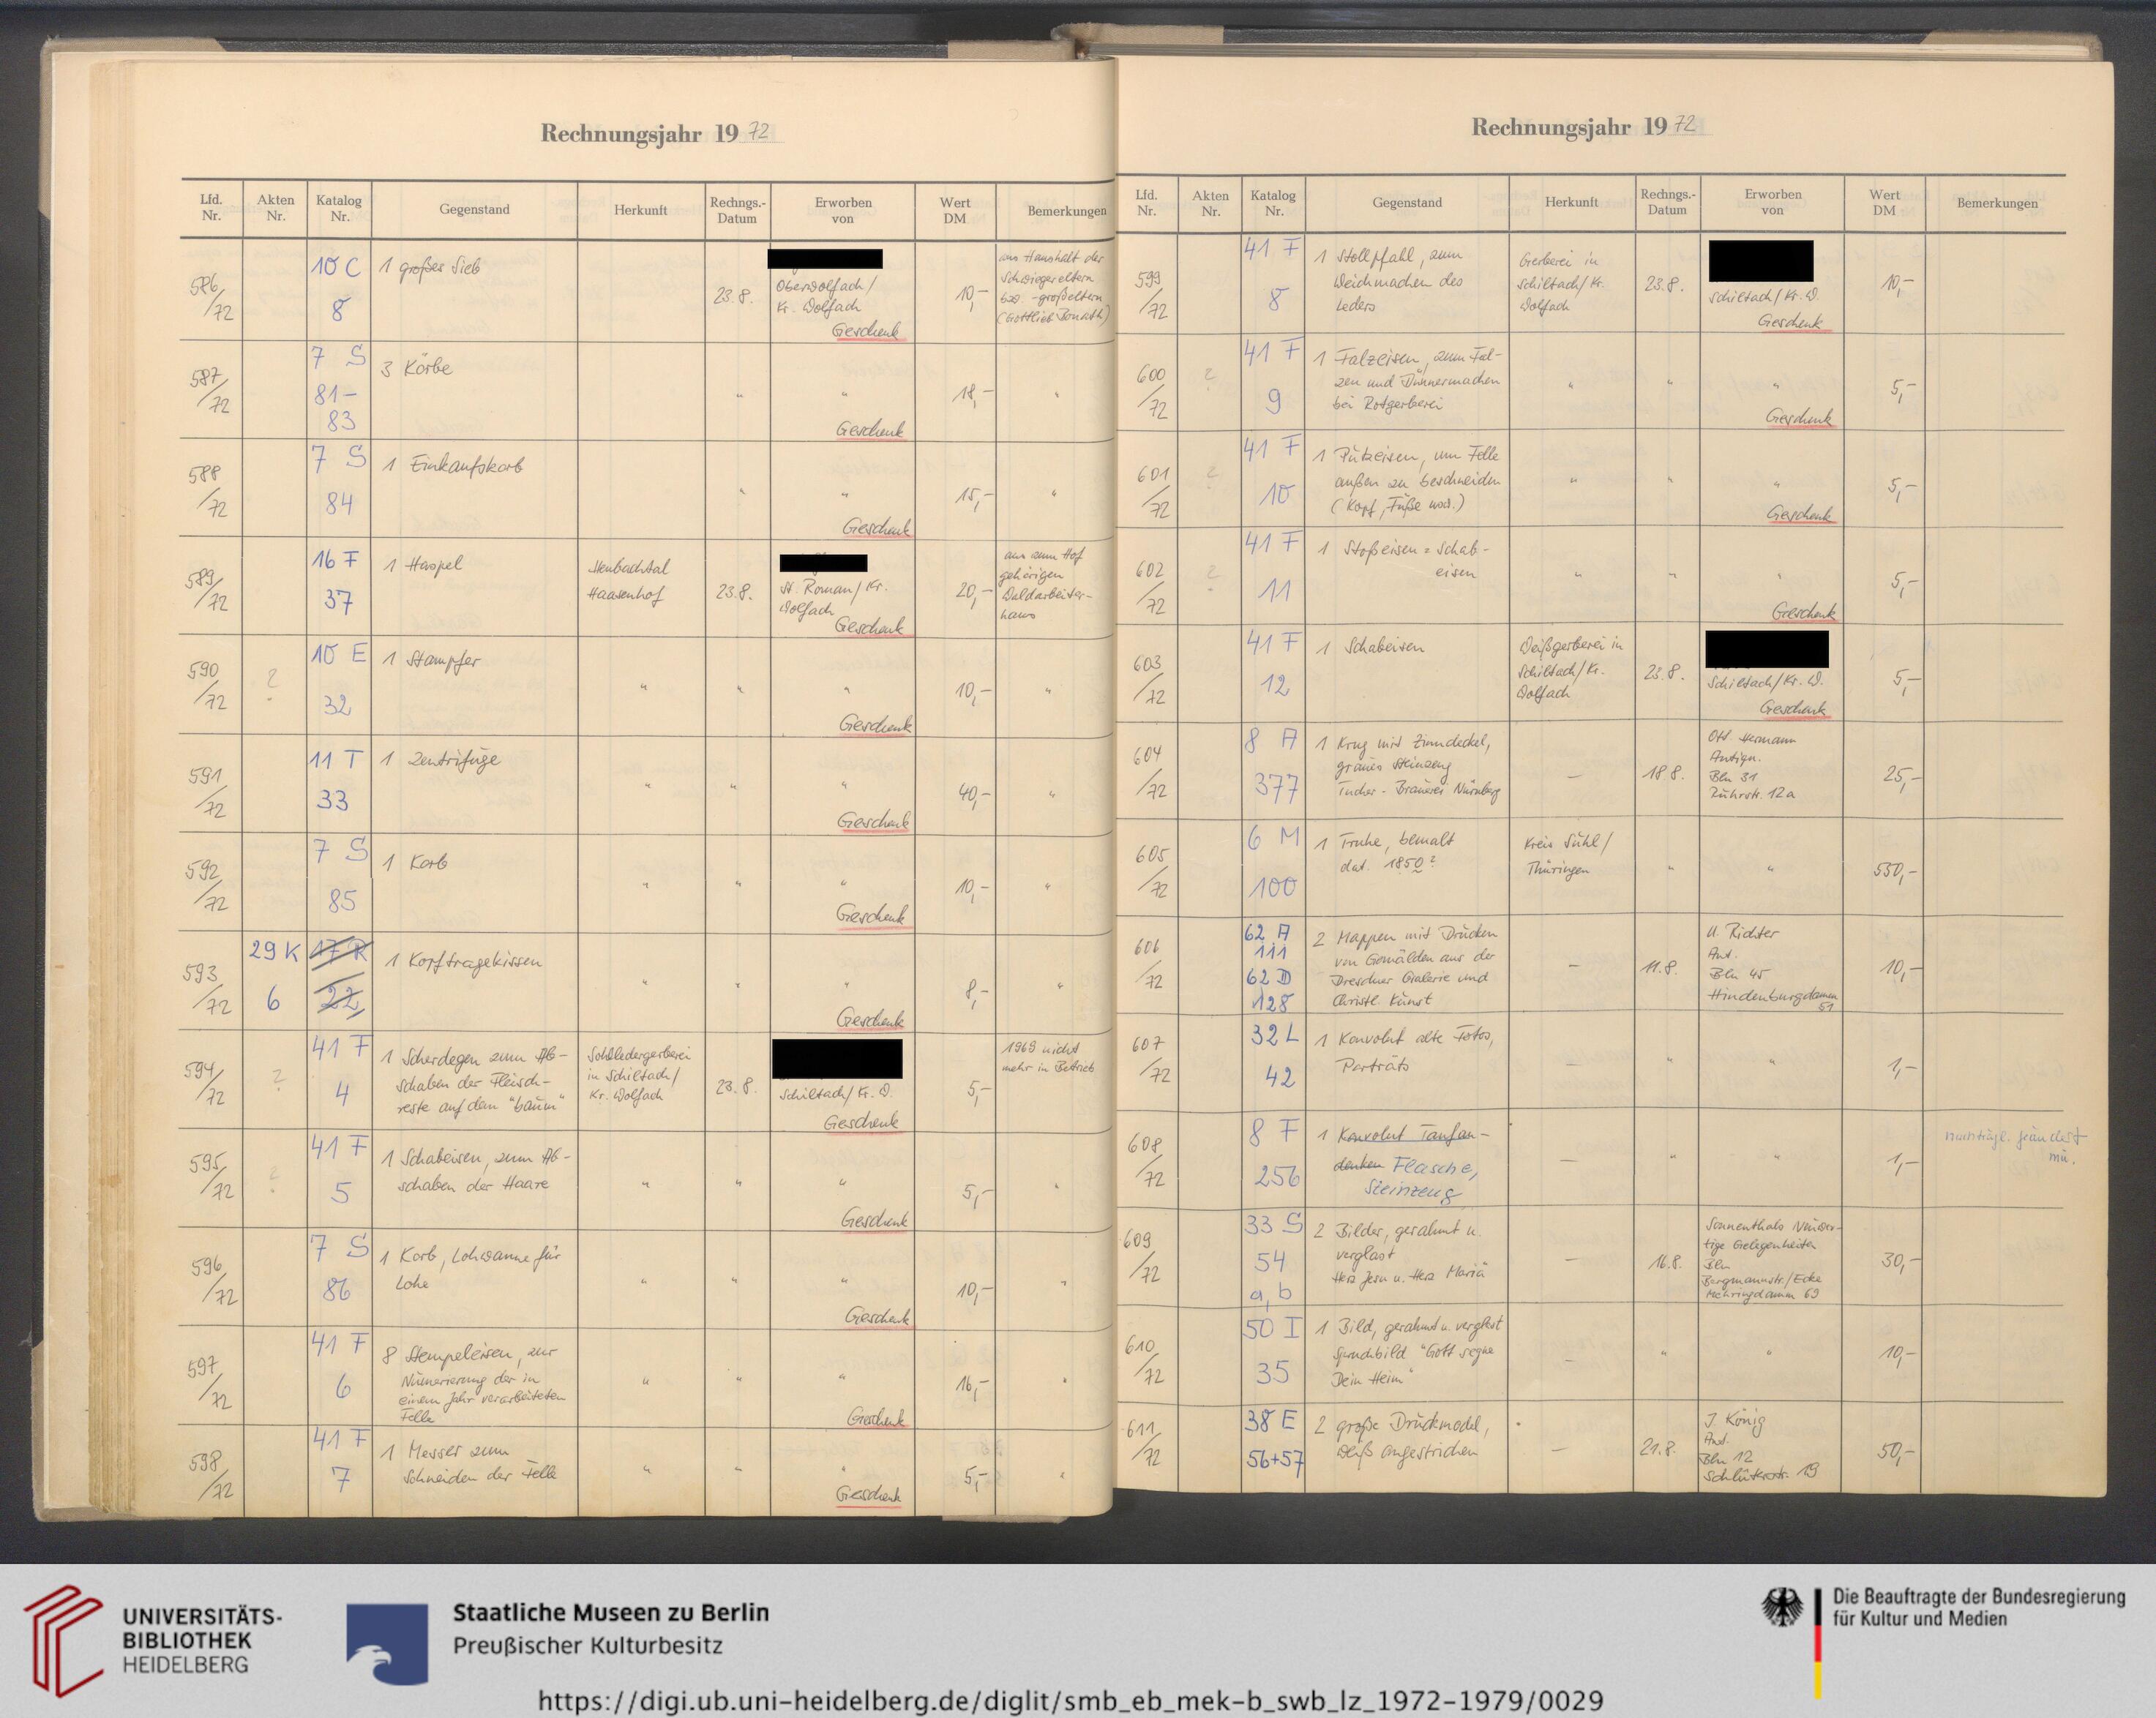 Rechnungsjahr 1972
Lfd. Nr.
Akten Nr.
Katalog Nr.
Gegenstand
Herkunft
Rechngs.-Datum
Erworben von
Wert DM
Bemerkungen
586/72
10 C
8
1 großes Sieb
23.8.
Oberwolfach/
Kr. Wolfach
Geschenk
10,-
aus Haushalt der
Schwiegereltern
bzw. -großeltern
587/72
7 S
81-
83
3 Körbe
"
"
Geschenk
18,-
"
588/72
7 S
84
1 Einkaufskorb
"
"
Geschenk
15,-
"
589/72
16 F
37
1 Haspel
Heubachtal
Haasenhof
23.8.
St. Roman/Kr.
Wolfach
Geschenk
20,-
aus zum Hof
gehörigen
Waldarbeiter-
haus
590/72
?
10 E
32
1 Stampfer
"
"
"
Geschenk
10,-
"
591/72
11 T
33
1 Zentrifuge
"
"
"
Geschenk
40,-
"
592/72
7 S
85
1 Korb
"
"
"
Geschenk
10,-
"
593/72
29 K
6
17 R
22
1 Kopftragekissen
"
"
"
Geschenk
8,-
"
594/72
?
41 F
4
1 Scherdegen zum Ab-
schaben der Fleisch-
reste auf dem "baum"
Sohlledergerberei
in Schiltach/
Kr. Wolfach
23.8.
Schiltach/Kr. W.
Geschenk
5,-
1969 nicht
mehr in Betrieb
595/72
?
41 F
5
1 Schabeisen, zum Ab-
schaben der Haare
"
"
"
Geschenk
5,-
"
596/72
7 S
86
1 Korb, Lohwanne für
Lohe
"
"
"
Geschenk
10,-
"
597/72
41 F
6
8 Stempeleisen, zur
Numerierung der in
einem Jahr verarbeiteten
Felle
"
"
"
Geschenk
16,-
"
598/72
41 F
7
1 Messer zum
Schneiden der Felle
"
"
"
Geschenk
5,-
"
Rechnungsjahr 1972
Lfd. Nr.
Akten Nr.
Katalog Nr.
Gegenstand
Herkunft
Rechngs.-Datum
Erworben von
Wert DM
Bemerkungen
599/72
41 F
8
1 Stollpfahl, zum
Weichmachen des
Leders
Gerberei in
Schiltach/Kr.
Wolfach
23.8.
Schiltach/Kr. W.
Geschenk
10,-
600/72
?
41 F
9
1 Falzeisen, zum Fal-
zen und Dünnermachen
bei Rotgerberei
"
"
"
Geschenk
5,-
601/72
?
41 F
10
1 Putzeisen, um Felle
außen zu beschneiden
(Kopf, Füße usw.)
"
"
"
Geschenk
5,-
602/72
?
41 F
11
1 Stoßeisen = Schab-
eisen
"
"
"
Geschenk
5,-
603/72
41 F
12
1 Schabeisen
Weißgerberei in
Schiltach/Kr.
Wolfach
23.8.
Schiltach/Kr. W.
Geschenk
5,-
604/72
8 A
377
1 Krug mit Zinndeckel,
graues Steinzeug
Tucher-Brauerei Nürnberg
—
18.8.
Ott. Hermann
Antiqu.
Bln 31
12a
25,-
605/72
6 M
100
1 Truhe, bemalt
dat. 1850?
Kreis Suhl/
Thüringen
"
"
550,-
606/72
62 A
111
62 D
128
2 Mappen mit Drucken
von Gemälden aus der
Dresdner Galerie und
Christl. Kunst
—
11.8.
U. Richter
Ant.
Bln 45
Hindenburgdamm
51
10,-
607/72
32 L
42
1 Konvolut alte Fotos,
Porträts
—
"
"
1,-
608/72
8 F
256
1 Konvolut Taufan-
denken Flasche,
Steinzeug
—
"
"
1,-
nachträgl. geändert
mü.
609/72
33 S
54
a, b
2 Bilder, gerahmt u.
verglast
Herz Jesu u. Herz Mariä
—
16.8.
Sonnenthals
Gelegenheiten
Bln
Bergmannstr./Ecke
Mehringdamm 69
30,-
610/72
50 I
35
1 Bild, gerahmt u. verglast
Spruchbild "Gott segne
Dein Heim"
—
"
"
10,-
611/72
38 E
56+57
2 große Druckmodel,
weiß angestrichen
—
21.8.
J. König
Ant.
Bln 12
Schlüterstr. 19
50,-
UNIVERSITÄTS-
BIBLIOTHEK
HEIDELBERG
Staatliche Museen zu Berlin
Preußischer Kulturbesitz
Die Beauftragte der Bundesregierung
für Kultur und Medien
https://digi.ub.uni-heidelberg.de/diglit/smb_eb_mek-b_swb_lz_1972-1979/0029